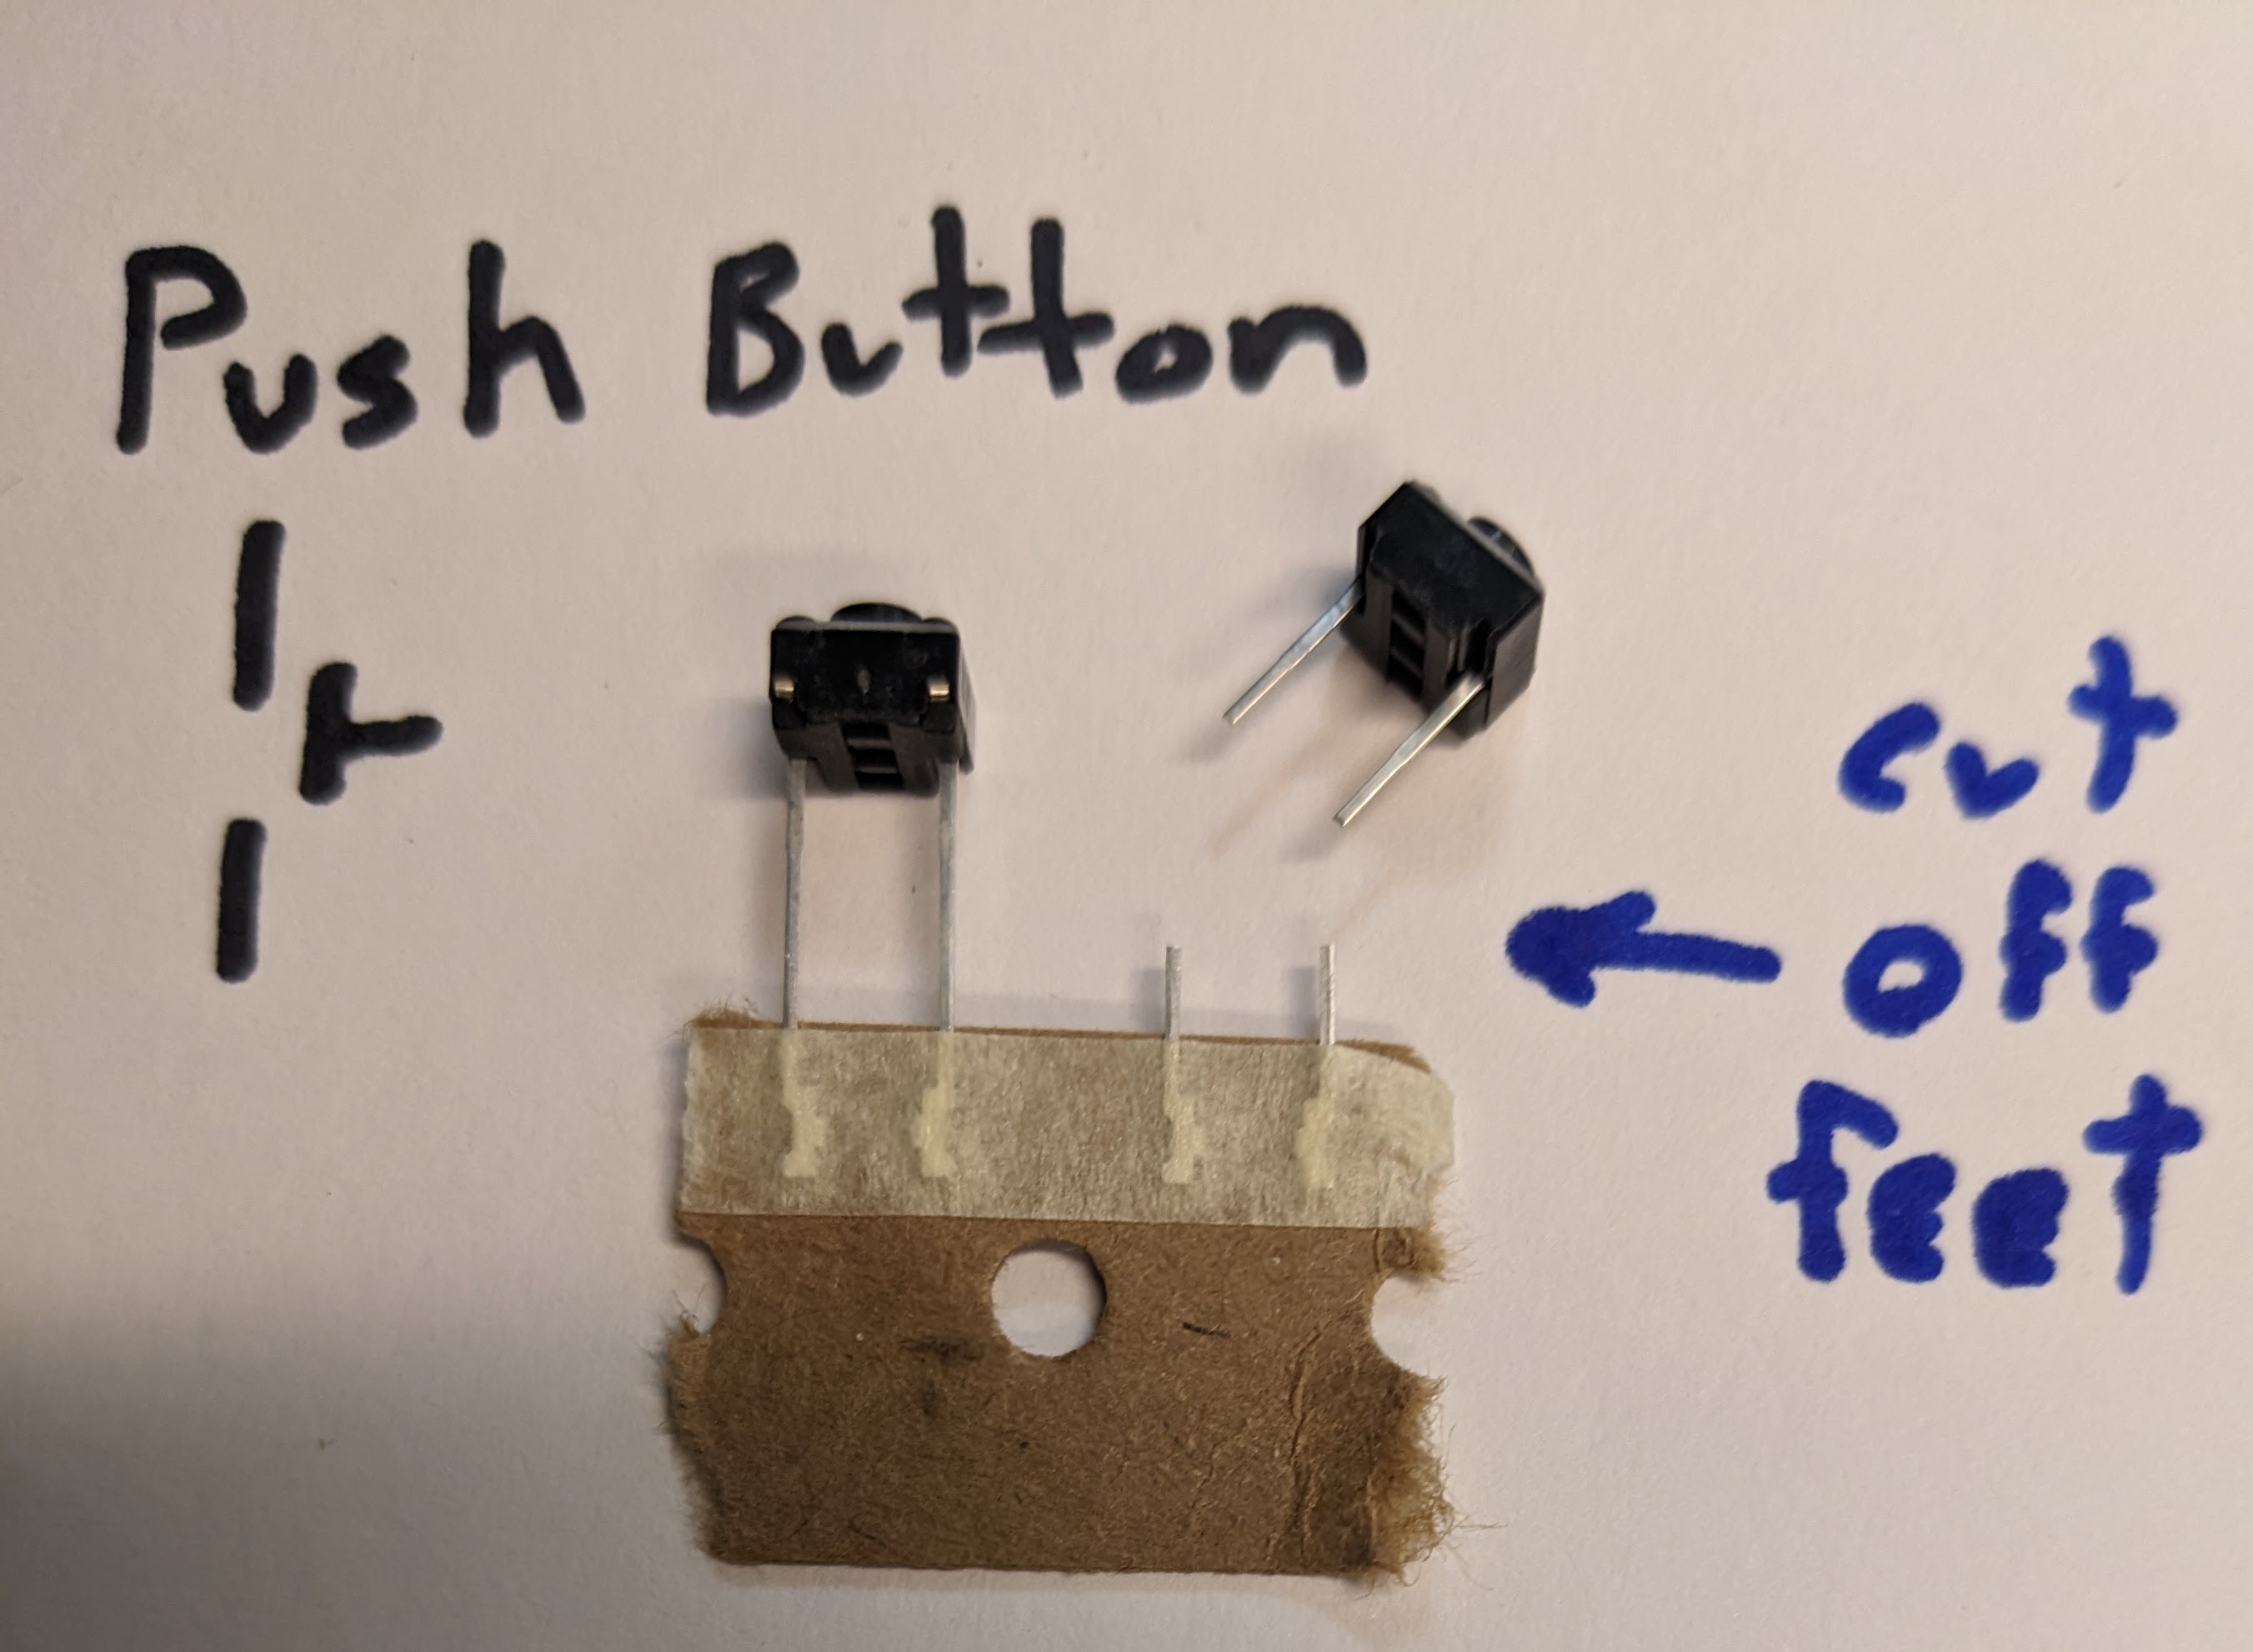 Push Button
cut
off
feet